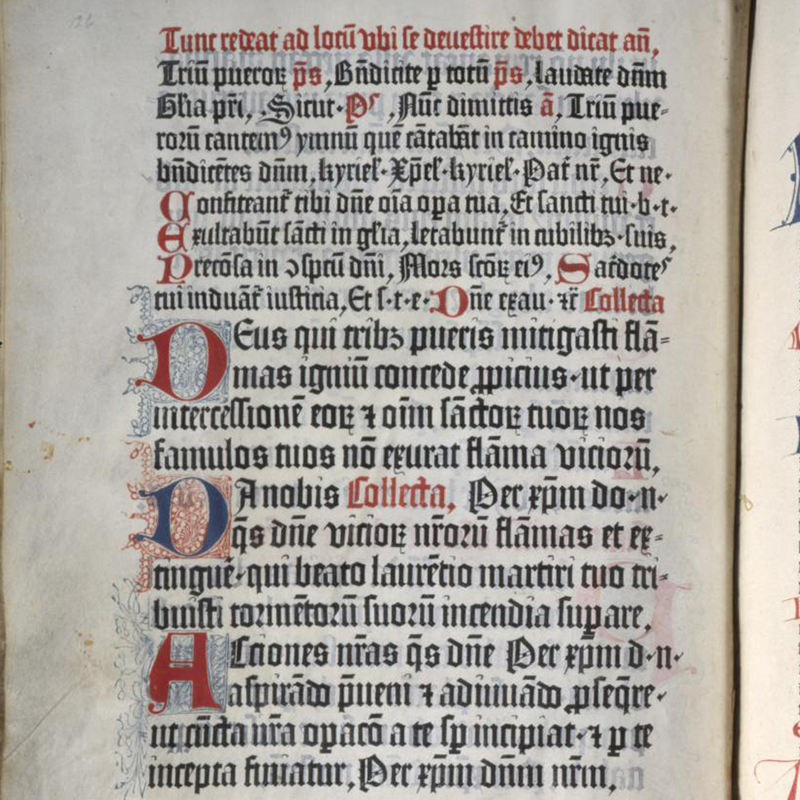 Tunc redeat ad locū vbi se deuestire debet dicat añ,
Triū pueroꝝ p̄s, Bñdicite p totū p̄s, laudate dñm
Gl̄ia pr̄i, Sicut· Pˢ, Nūc dimittis ā, Triū pue⸗
rorū cantemꝰ ymnū quē cātabāt in camino ignis
bñdicētes dñm, kyriel̄· Xp̄el̄· kyriel̄· Pat̄ nr̄, Et ne·
Confiteant̄ tibi dñe oīa oꝑa tua, Et sancti tui· b·t·
Exultabūt sācti in gl̄ia, letabunt̄ in cubilibꝫ· suis,
Preciosa in ɔsptū dñi, Mors sctōꝝ eiꝰ, Sac̄dotes
tui induāt̄ iusticia, Et s·t·e· Dñe exau· ⁊r̄ Collecta
DEus qui tribꝫ pueris mitigasti flā⸗
mas igniū concede ꝓpicius· ut per
intercessionē eoꝝ ⁊ oīm sāctoꝝ tuoꝝ nos
famulos tuos nō exurat flāma vicioꝛū,
DA nobis Collecta, Per xp̄m do· n·
q̄s dñe vicioꝝ nr̄oꝛū flāmas et ex⸗
tinguē· qui beato laurētio martiri tuo tri⸗
buisti toꝛmētoꝛū suoꝛū incendia suꝑare,
ACtiones nr̄as q̄s dñe Per xp̄m d· n·
aspirādo p̄ueni ⁊ adiuuādo ꝓseq̄re·
ut cūcta nr̄a opacō a te sꝑ incipiat· ⁊ ꝑ te
incepta finiatur, Per xp̄m dñm nr̄m,